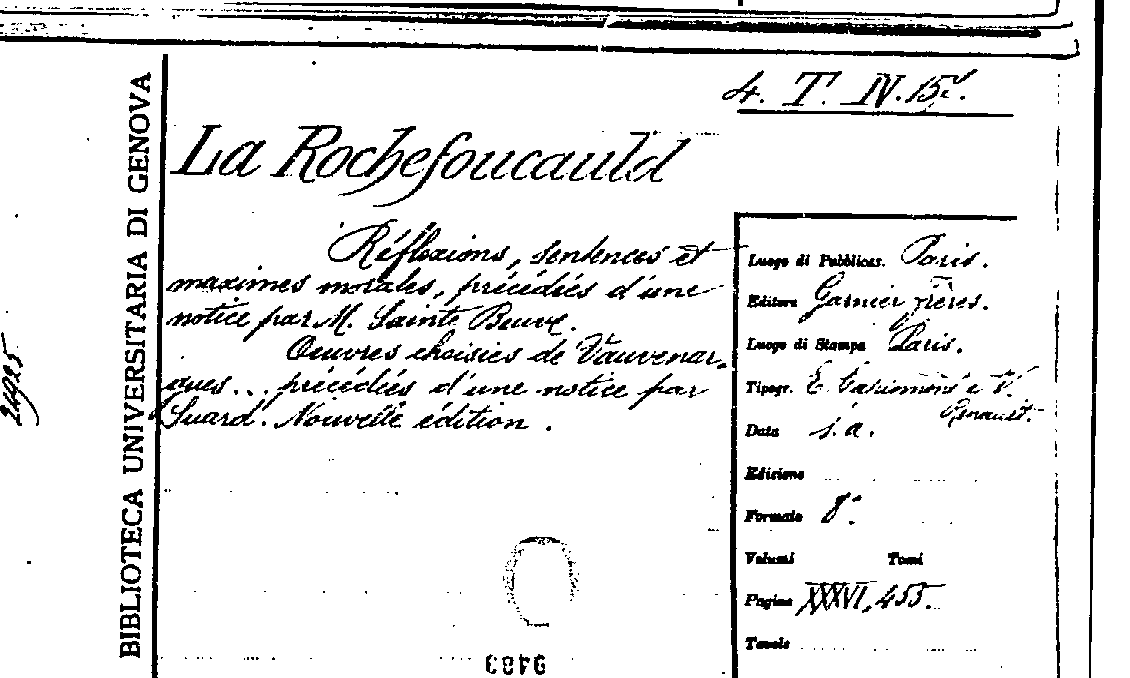 4. T. IV. 15
La Rochefoucauld
Réflexions, sentences et
maximes morales, précédiés d'une
notice par M. Sainte Beuve.
Oeuvres choisies de Vauvenar.
gues... précédiés d'une notice par
Suard. Nouvelle édition.
BIBLIOTECA UNIVERSITARIA DI GENOVA
Luogo di Pubblicaz. Paris.
Editore Garnier frères.
Luogo di Stampa Paris.
Tipogr. E. et V.
Renault.
Data s. a.
Edizione
Formato 8°.
Volumi Tomi
Pagine XXXVI, 455.
Tavole